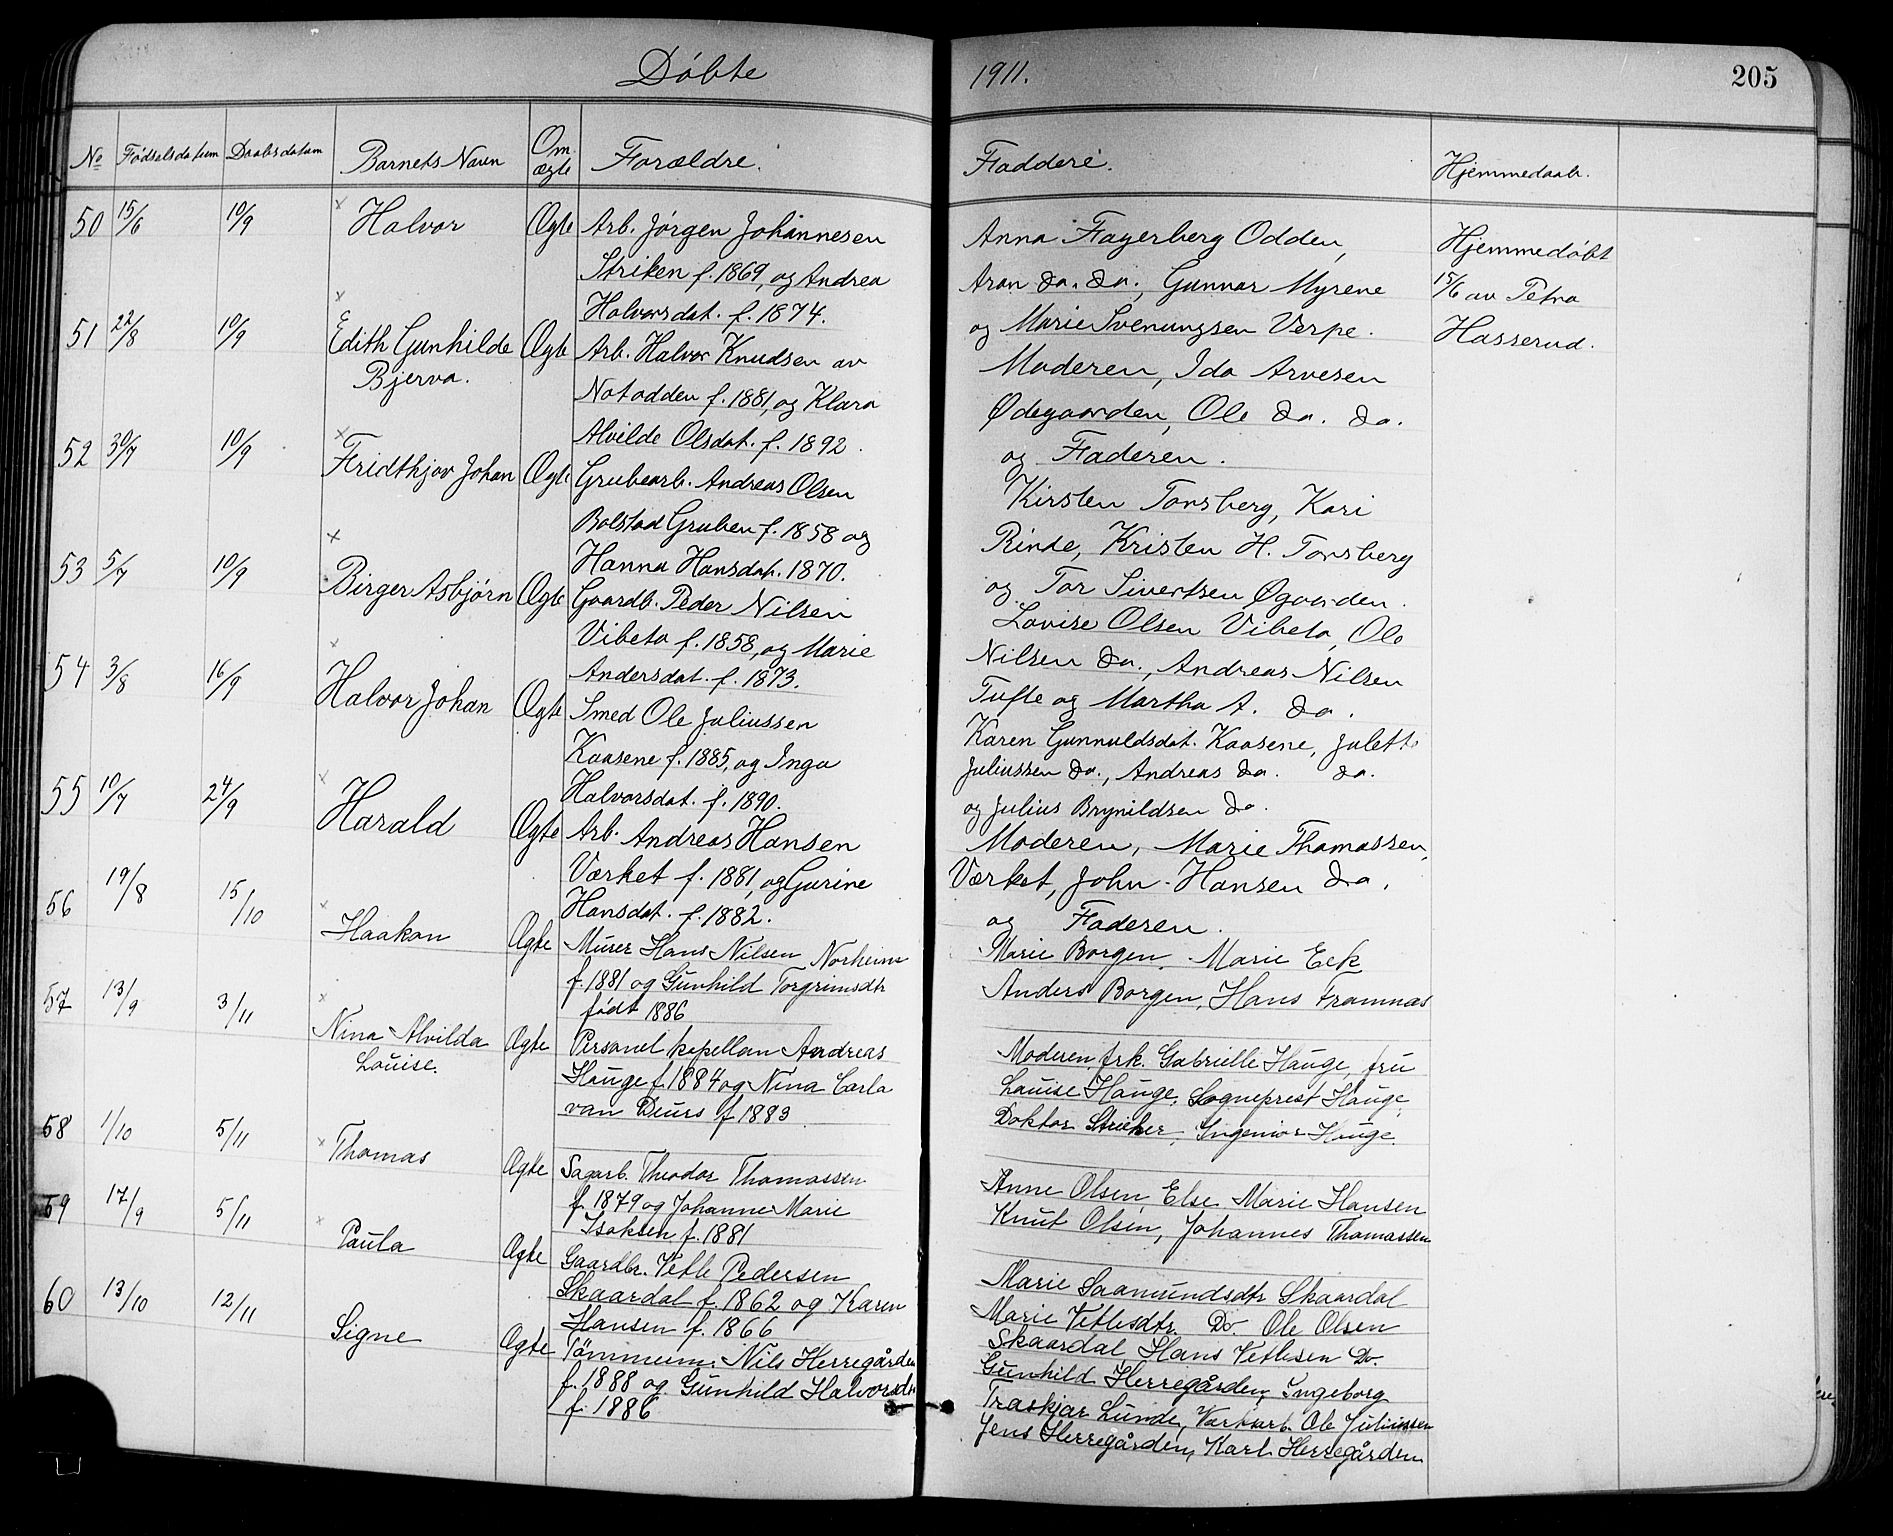 Døbte 1911. 205
No Fødselsdatum Daabsdatum Barnets Navn Om ægte Forældre. Faddere. Hjemmedaab.
50 15/6 10/9 Halvor Ægte Arb. Jørgen Johannesen
Striken f. 1869, og Andrea
Halvorsdat. f. 1874.
Anna Fagerberg Odden,
Aran do. do., Gunnar Myrene
og Marie Svenungsen Verpe.
Hjemmedøbt
15/6 av Petra
Hasserud.
51 22/8 10/9 Edith Gunhilde Ægte Arb. Halvor Knudsen av
Bjerva. Notodden f. 1881, og Klara
Alvilde Olsdat. f. 1892.
Moderen, Ida Arvesen
Ødegaarden, Ole do. do.
og Faderen.
52 30/7 10/9 Fridthjov Johan Ægte Grubearb. Andreas Olsen
Bolstad Gruben f. 1858 og
Hanna Hansdat. 1870.
Kirsten Tonsberg, Kari
Rinde, Kristen H. Tonsberg
og Tor Sivertsen Øgaarden.
53 5/7 10/9 Birger Asbjørn Ægte Gaardb. Peder Nilsen
Vibeto f. 1858, og Marie
Andersdat. f. 1873.
Lovise Olsen Vibeto, Ole
Nilsen do., Andreas Nilsen
Tufte og Martha A. do.
54 3/8 16/9 Halvor Johan Ægte Smed Ole Juliussen
Kaasene f. 1885, og Inga
Halvorsdat. f. 1890.
Karen Gunnuldsdat. Kaasene, Julette
Juliussen do., Andreas do. do.
og Julius Brynildsen do.
55 10/7 24/9 Harald Ægte Arb. Andreas Hansen
Værket f. 1881, og Gurine
Hansdat. f. 1882.
Moderen, Marie Thomassen,
Værket, John Hansen do.
og Faderen.
56 19/8 15/10 Haakon Ægte Murer Hans Nilsen Norheim
f. 1881 og Gunhild Torgrimsdtr
født 1886
Marie Borgen, Marie Eek
Anders Borgen, Hans Framnas
57 13/9 3/11 Nina Alvilda Ægte Personel kapellan Andreas
Louise. Hauge f. 1884 og Nina Carla
van Deurs f 1883
Moderen, frk. Gabrielle Hauge, fru
Louise Hauge, Sogneprest Hauge,
Doktor Ingeniør Hauge.
58 1/10 5/11 Thomas Ægte Sagarb. Theodor Thomassen
f. 1879 og Johanne Marie
Isaksen f. 1881
Anne Olsen, Else Marie Hansen
Knut Olsen, Johannes Thomassen
59 17/9 5/11 Paula Ægte Gaardbr. Vetle Pedersen
Skaardal f. 1862 og Karen
Hansen f. 1866
Marie Saamundsdtr Skaardal
Marie Vetlesdtr. Do. Ole Olsen
Skaardal Hans Vetlesen Do.
60 13/10 12/11 Signe Ægte Tømmerm. Nils Herregården
f. 1888 og Gunhild Halvorsdtr
f. 1886
Gunhild Herregården, Ingeborg
Traskjær Lunde, Værkarb. Ole Juliussen
Jens Herregården, Karl Herregården